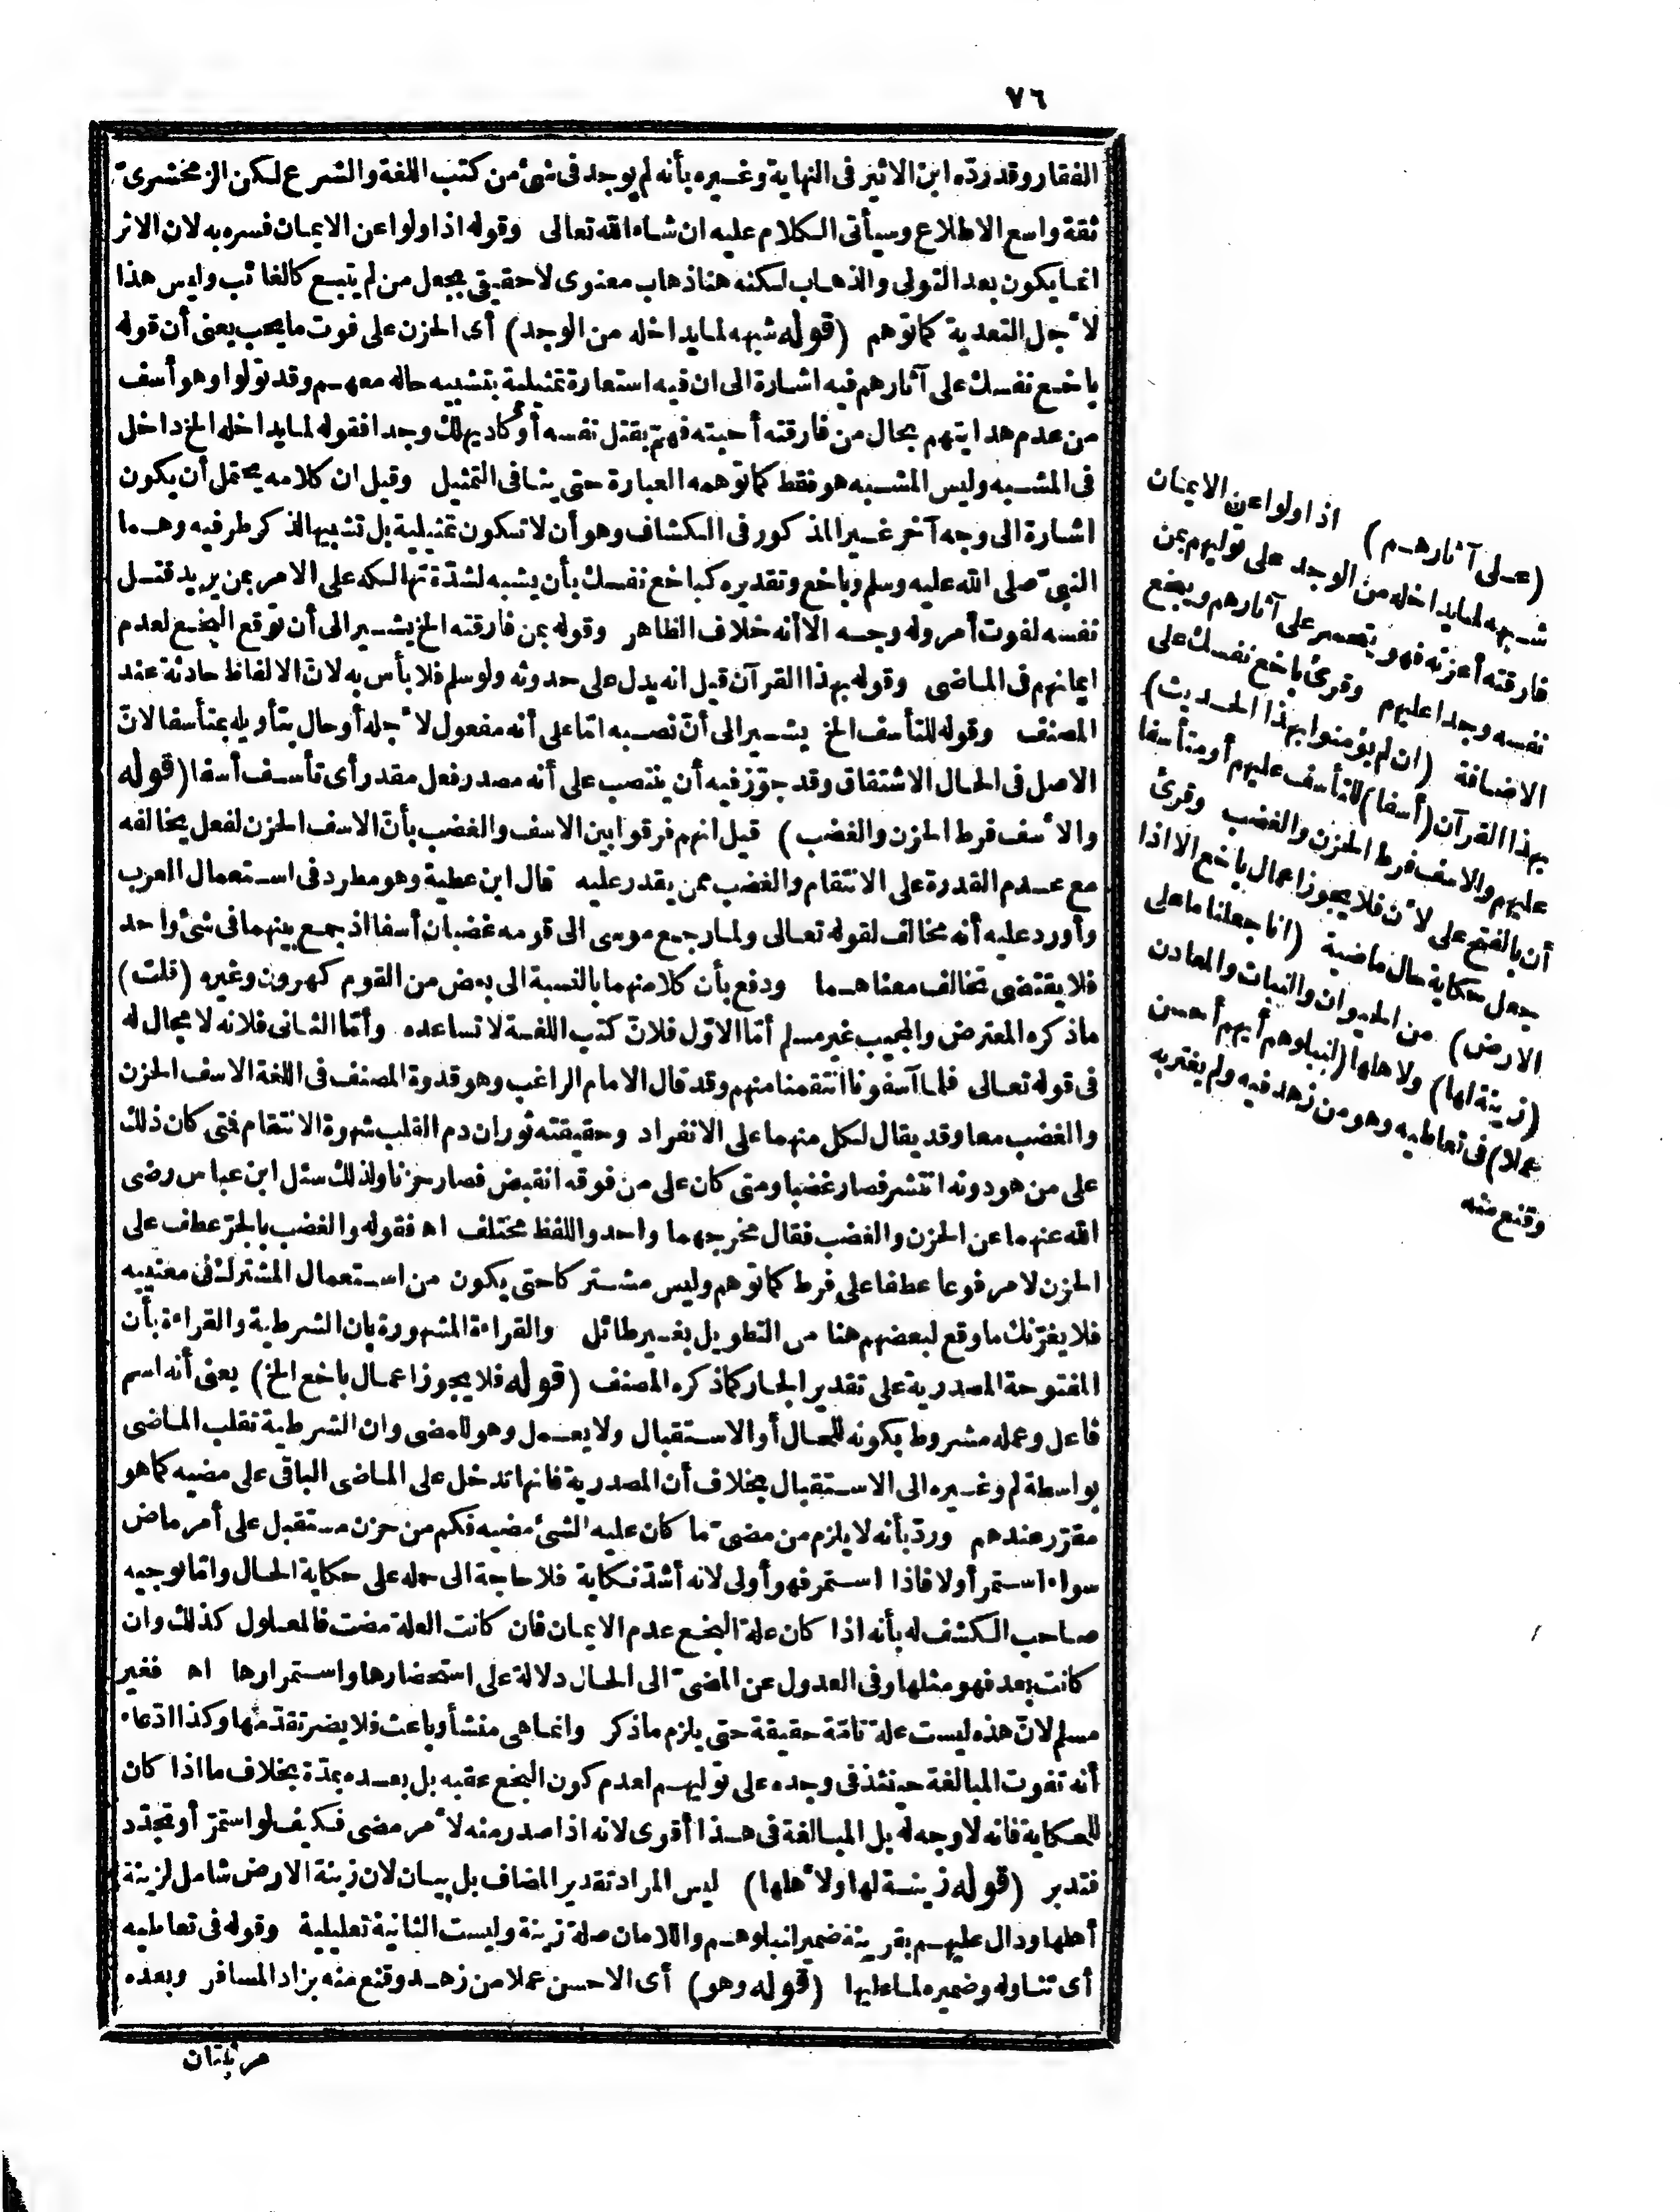 ٧٦
الفقار وقد ردّه ابن الاثير فى النهاية وغيره بأنه لم يوجد فى شئ من كتب اللغة والشرع لكن الزمخشرىّ
ثقة واسع الاطلاع وسيأتى الكلام عليه ان شاء الله تعالى وقوله اذا ولوا عن الايمان فسره به لان الاثر
انما يكون بعد التولى والذهاب لكنه هنا ذهاب معنوى لا حقيقى بجعل من لم يتبع كالغائب وليس هذا
لأجل التعدية كما توهم (قوله شبهه لما يداخله من الوجد) أى الحزن على فوت ما يحب يعنى أن قوله
باخع نفسك على آثارهم فيه اشارة الى ان فيه استعارة تمثيلية بتشبيه حاله معهم وقد تولوا وهو أسف
من عدم هدايتهم بحال من فارقته أحبته فهمّ بقتل نفسه أو كاد يهلك وجدا فقوله لما يداخله الخ داخل
فى المشبه وليس المشبه هو فقط كما توهمه العبارة حتى ينافى التمثيل وقيل ان كلامه يحتمل أن يكون
اشارة الى وجه آخر غير المذكور فى الكشاف وهو أن لا تكون تمثيلية بل تشبيها لذكر طرفيه وهما
النبىّ صلى الله عليه وسلم وباخع وتقديره كباخع نفسك بأن يشبه لشدّة تهالكه على الامر بمن يريد قتل
نفسه لفوت أمر وله وجه الا أنه خلاف الظاهر وقوله بمن فارقته الخ يشير الى أن توقع البخع لعدم
ايمانهم فى الماضى وقوله بهذا القرآن قيل انه يدل على حدوثه ولو سلم فلا بأس به لانّ الالفاظ حادثة عند
المصنف وقوله للتأسف الخ يشير الى أنّ نصبه اما على أنه مفعول لأجله أو حال بتأويله بمتأسفا لانّ
الاصل فى الحال الاشتقاق وقد جوّز فيه أن ينتصب على أنه مصدر فعل مقدر أى تأسف أسفا (قوله
والأسف فرط الحزن والغضب) قيل انهم فرقوا بين الاسف والغضب بأنّ الاسف الحزن لفعل يخالفه
مع عدم القدرة على الانتقام والغضب ممن يقدر عليه قال ابن عطية وهو مطرد فى استعمال العرب
وأورد عليه أنه مخالف لقوله تعالى ولما رجع موسى الى قومه غضبان أسفا اذ جمع بينهما فى شئ واحد
فلا يقتضى تخالف معناهما ودفع بأن كلا منهما بالنسبة الى بعض من القوم كهرون وغيره (قلت)
ما ذكره المعترض والمجيب غير مسلم أمّا الاوّل فلانّ كتب اللغة لا تساعده وأمّا الثانى فلانه لا مجال له
فى قوله تعالى فلما آسفونا انتقمنا منهم وقد قال الامام الراغب وهو قدوة المصنف فى اللغة الاسف الحزن
والغضب معا وقد يقال لكل منهما على الانفراد وحقيقته ثوران دم القلب شهوة الانتقام فمتى كان ذلك
على من هو دونه انتشر فصار غضبا ومتى كان على من فوقه انقبض فصار حزنا ولذلك سئل ابن عباس رضى
الله عنهما عن الحزن والغضب فقال مخرجهما واحد واللفظ مختلف اه فقوله والغضب بالجرّ عطف على
الحزن لا مرفوعا عطفا على فرط كما توهم وليس مشتركا حتى يكون من استعمال المشترك فى معنييه
فلا يغرّنك ما وقع لبعضهم هنا من التطويل بغير طائل والقراءة المشهورة بان الشرطية والقراءة بأن
المفتوحة المصدرية على تقدير الجار كما ذكره المصنف (قوله فلا يجوز اعمال باخع الخ) يعنى أنه اسم
فاعل وعمله مشروط بكونه للحال أو الاستقبال ولا يعمل وهو للمضى وان الشرطية تقلب الماضى
بواسطة لم وغيره الى الاستقبال بخلاف أن المصدرية فانها تدخل على الماضى الباقى على مضيه كما هو
مقرّر عندهم وردّ بأنه لا يلزم من مضىّ ما كان عليه الشئ مضيه فكم من حزن مستقبل على أمر ماض
سواء استمر أولا فاذا استمر فهو أولى لانه أشدّ نكاية فلا حاجة الى حمله على حكاية الحال وامّا توجيه
صاحب الكشف له بأنه اذا كان علة البخع عدم الايمان فان كانت العلة مضت فالمعلول كذلك وان
كانت بعد فهو مثلها وفى العدول عن المضىّ الى الحال دلالة على استحضارها واستمرارها اه فغير
مسلم لانّ هذه ليست علة تامّة حقيقة حتى يلزم ما ذكر وانما هى منشأ وباعث فلا يضر تقدّمها وكذا ادّعاء
أنه تفوت المبالغة حينئذ فى وجده على توليهم لعدم كون البخع عقبه بل بعده بمدّة بخلاف ما اذا كان
للحكاية فانه لا وجه له بل المبالغة فى هذا أقوى لانه اذا صدر منه لأمر مضى فكيف لو استمرّ أو تجدّد
فتدبر (قوله زينة لها ولأهلها) ليس المراد تقدير المضاف بل بيان لان زينة الارض شامل لزينة
أهلها ودال عليهم بقرينة ضمير لنبلوهم واللامان صلة زينة وليست الثانية تعليلية وقوله فى تعاطيه
أى تناوله وضميره لما عليها (قوله وهو) أى الاحسن عملا من زهد وقنع منه بزاد المسافر وبعده
مرتبتان
(على آثارهم) اذا ولوا عن الايمان
شبهه لما يداخله من الوجد على توليهم بمن
فارقته أعزته فهو يتحسر على آثارهم ويبخع
نفسه وجدا عليهم وقرئ باخع نفسك على
الاضافة (ان لم يؤمنوا بهذا الحديث)
بهذا القرآن (أسفا) للتأسف عليهم أو متأسفا
عليهم والاسف فرط الحزن والغضب وقرئ
أن بالفتح على لأن فلا يجوز اعمال باخع الا اذا
جعل حكاية حال ماضية (انا جعلنا ما على
الارض) من الحيوان والنبات والمعادن
(زينة لها) ولاهلها (لنبلوهم أيهم أحسن
عملا) فى تعاطيه وهو من زهد فيه ولم يغتر به
وقنع منه